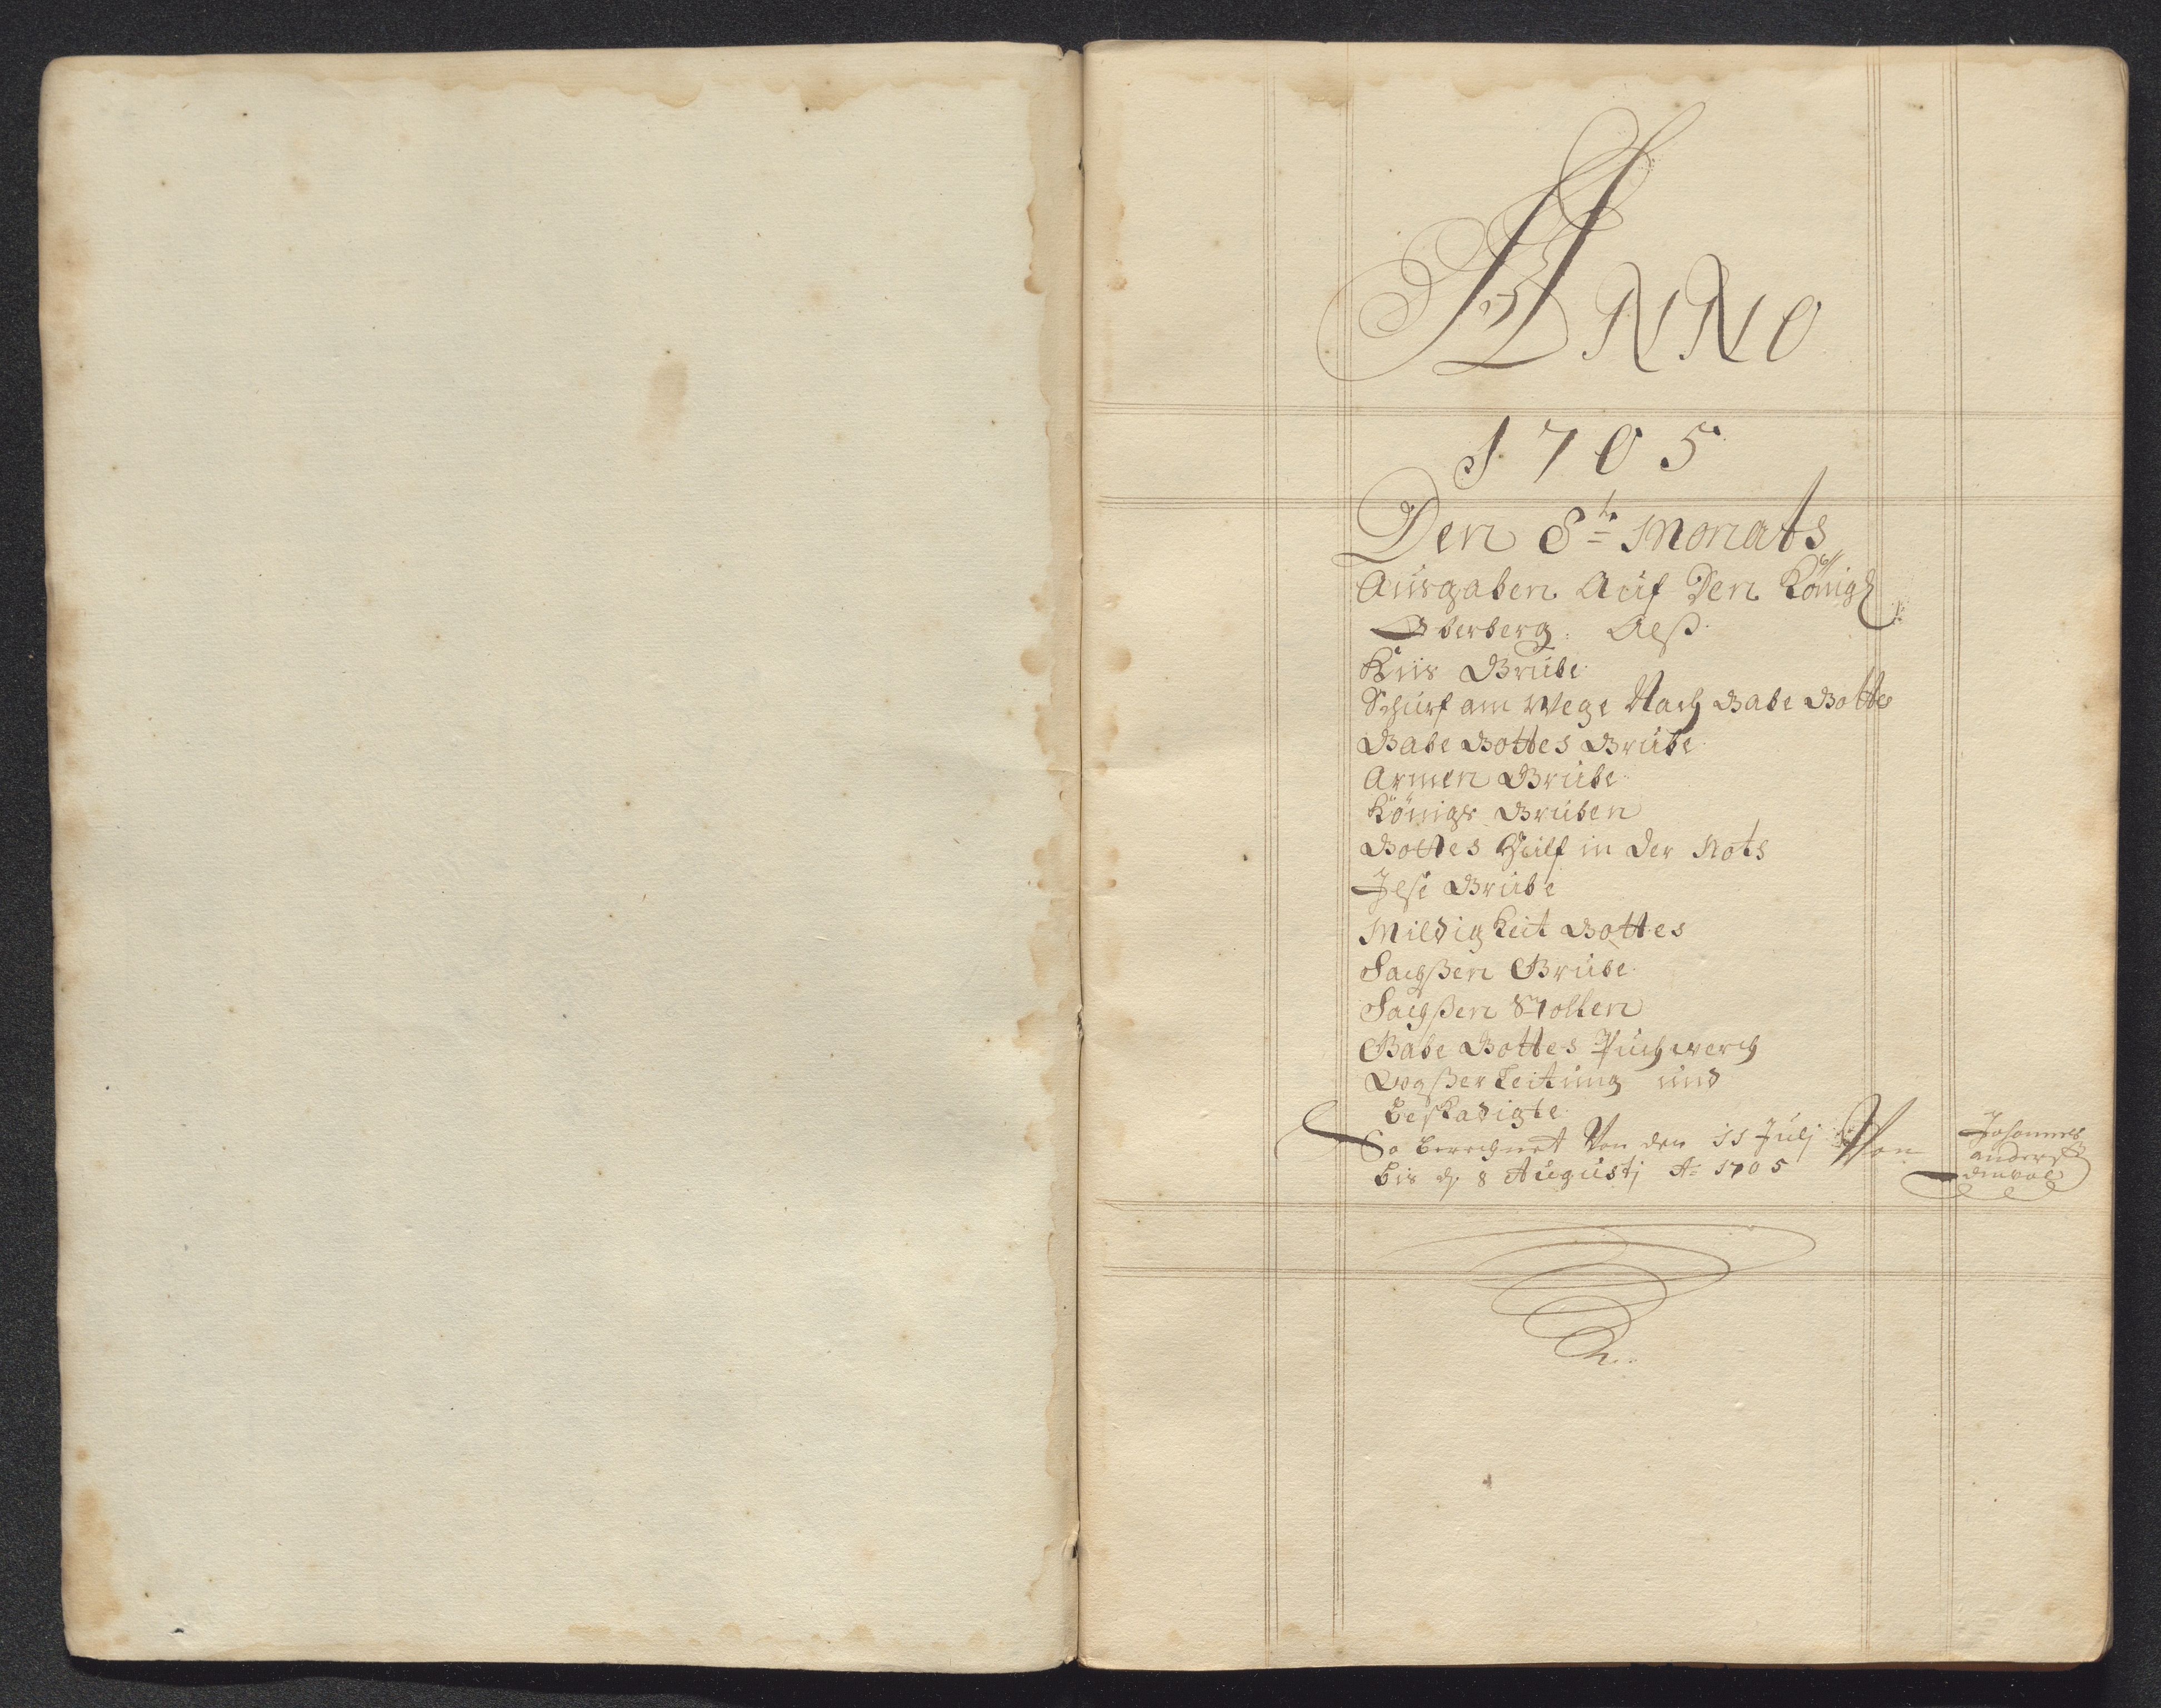 ANNO
1705
Den 8te Monats
Ausgaben Auf Den Königl
Oberberg: Alß
Kiis Grube
Schurf am Wege Nach Gabe Gottes
Gabe Gottes Grube
Armen Grube
Königs Gruben
Gottes Hülf in der Noth
Grube
Mildigkeit Gottes
Sachßen Grube
Sachßen Stollen
Gabe Gottes Puchwerch
Waßerleitung und
beskadigte
So berechnet Von den 11 Julj Von
bis d. 8 Augustj Ao 1705
Johannes
anders